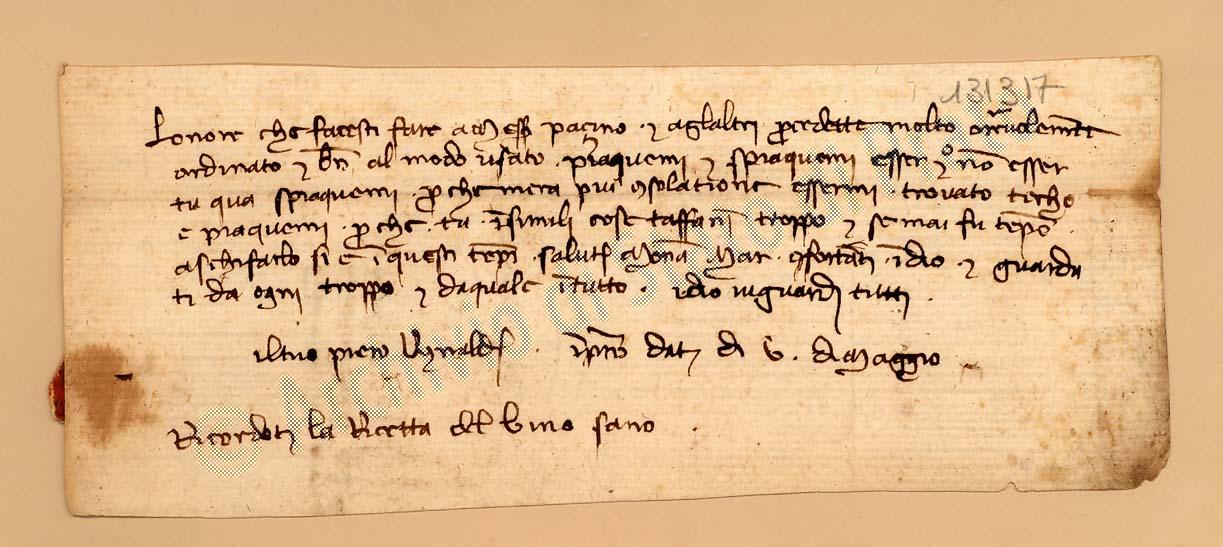 131317
Lonore che facesti fare a Mess pacino · & aglaltri procedette molto
ordinato & bn̄ al modo usato · piaquemi & spiaquemi esser & nō esser
tu qua spiaquemi · p̱che mera piu ꝯsolatione essermi · trovato techo
e piaquemi · p̱che · tu · ī simili cose taffanī troppo & se mai fu tēpo ·
a schifarlo si e ī questi tēpi · salutā Monā Mar · ꝯfortatī · īdio · & guarda
ti da ogni troppo & daquale ītutto · idio viguardi tutti ·
iltuo piero Rinaldi · ī prato dat di V · di Maggio
Ricordoti la Ricetta del Vino sano ·
© Archivio di Stato